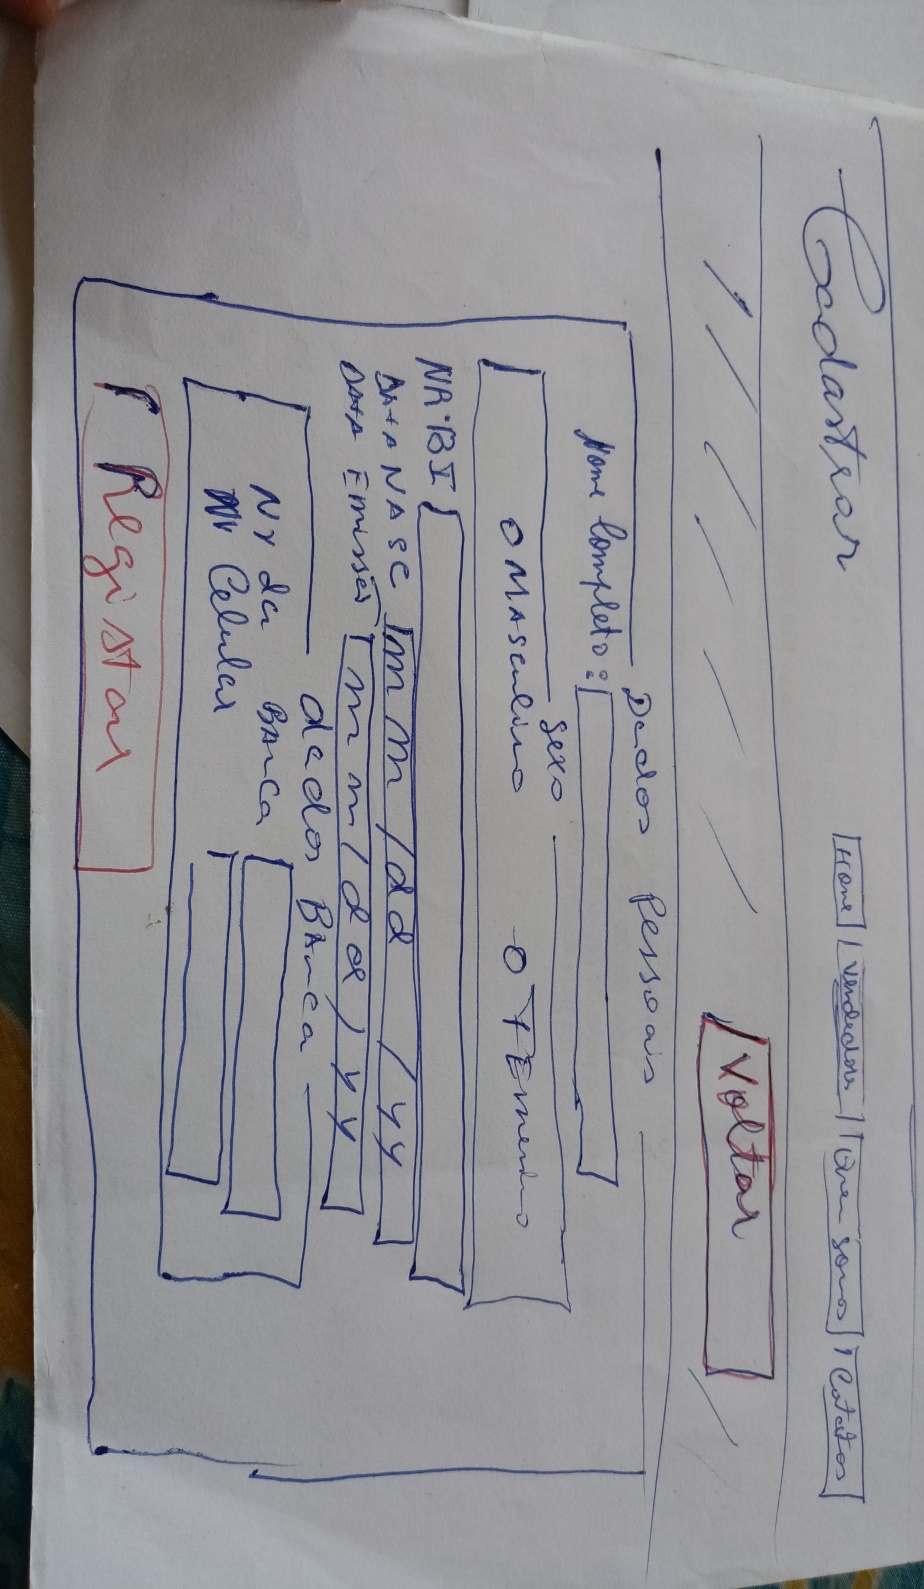 Cadastrar
Home | Vendedor | Quem somos | Contatos
Voltar
Dados Pessoais
Nome Completo:
Sexo
O Masculino O FEmenino
NR.BI
DAtA NAsc mm/dd/yy
DAtA Emissão mm/dd/yy
dados BAnca
Nr da BAnca
Nr Celular
Registar